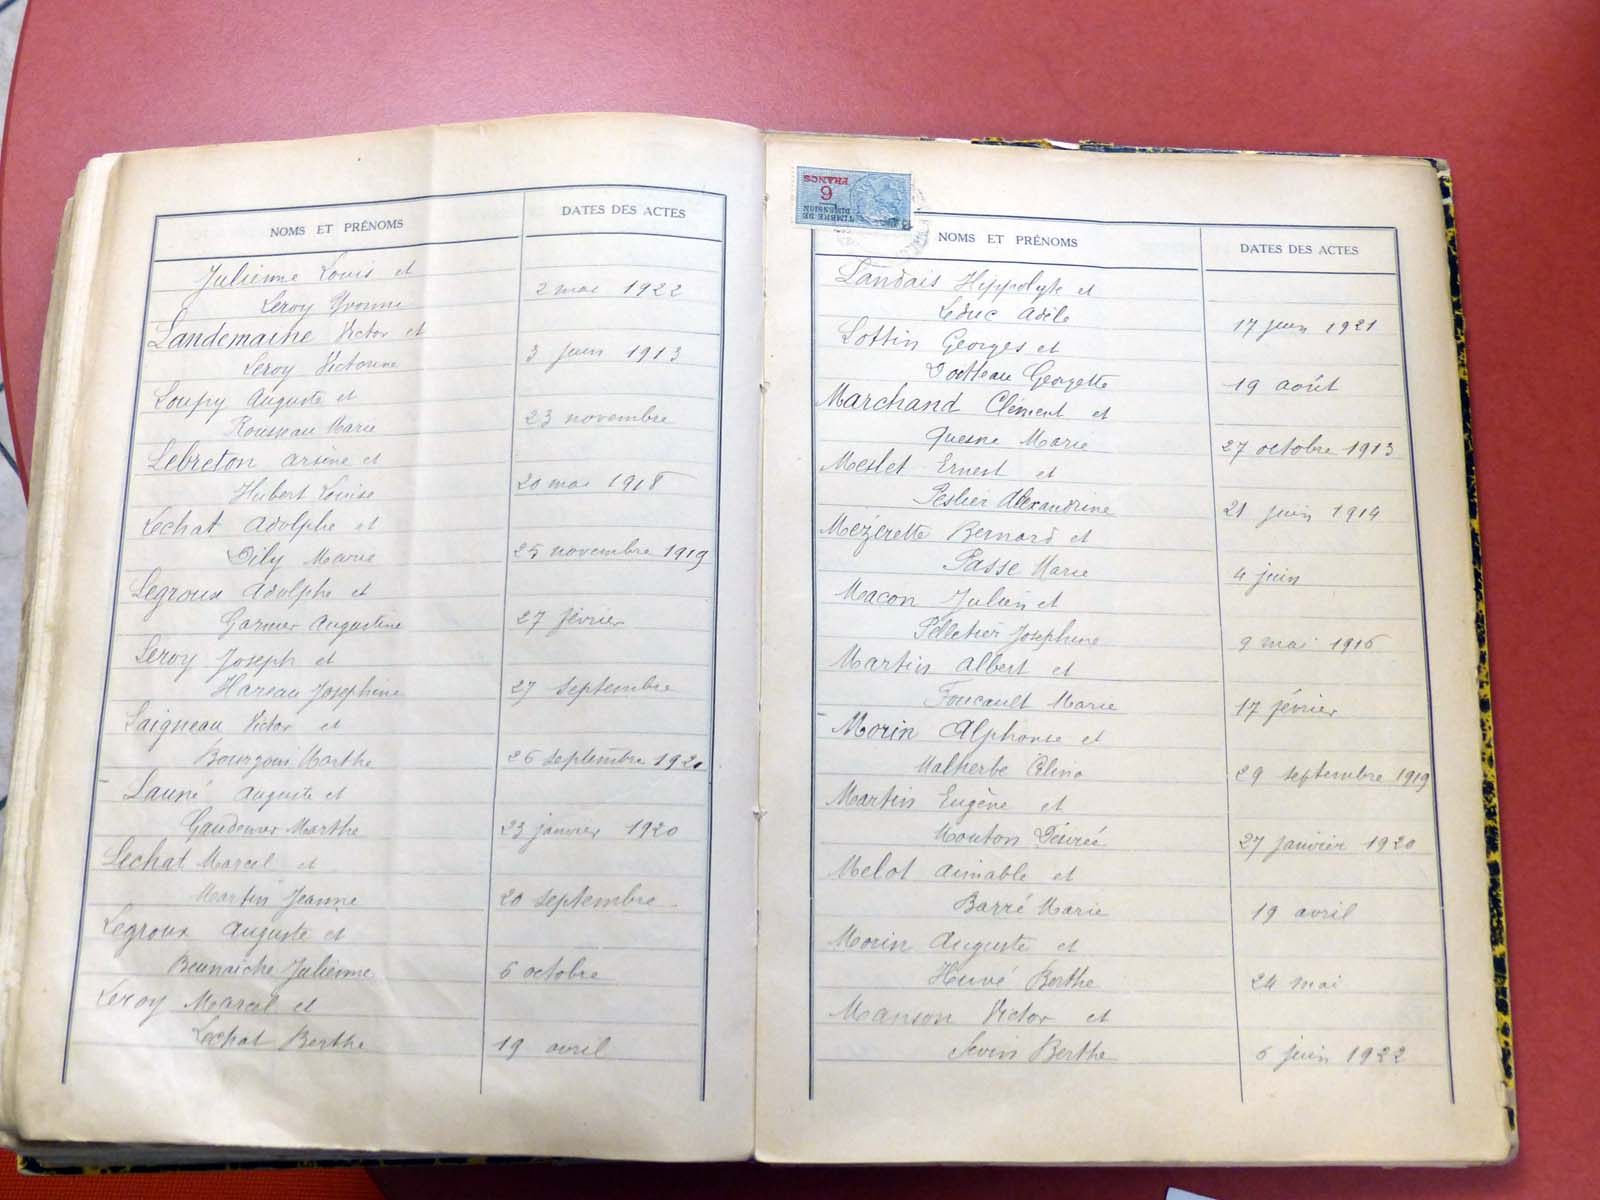 NOMS ET PRÉNOMS DATES DES ACTES
Julienne Louis et
Leroy Yvonne 2 mai 1922
Landemaine Victor et
Leroy Victorine 3 juin 1913
Loupy Auguste et
Rousseau Marie 23 novembre
Lebreton Arsène et
Hubert Louise 20 mai 1918
Lechat Adolphe et
Dily Marie 25 novembre 1919
Legroux Adolphe et
Garnier Augustine 27 février
Leroy Joseph et
Hareau Joséphine 27 septembre
Laigneau Victor et
Bourgoin Marthe 26 septembre
Launé Auguste et
Gaudemer Marthe 23 janvier 1920
Lechat Marcel et
Martin Jeanne 20 septembre
Legroux Auguste et
Beunaiche Julienne 6 octobre
Leroy Marcel et
Lechat Berthe 19 avril
TIMBRE DE
DIMENSION
6
FRANCS
NOMS ET PRÉNOMS DATES DES ACTES
Landais Hippolyte et
Leduc Adèle 17 juin 1921
Lottin Georges et
Georgette 19 août
Marchand Clément et
Quesne Marie 27 octobre 1913
Meslet Ernest et
Peslier Alexandrine 21 juin 1914
Mézerette Bernard et
Passe Marie 4 juin
Macon Julien et
Pelletier Joséphine 9 mai 1916
Martin Albert et
Foucault Marie 17 février
Morin Alphonse et
Malherbe Célina 29 septembre 1919
Martin Eugène et
Mouton Désirée 27 janvier 1920
Melot Aimable et
Barré Marie 19 avril
Morin Auguste et
Huvé Berthe 24 mai
Manson Victor et
Sevin Berthe 6 juin 1922